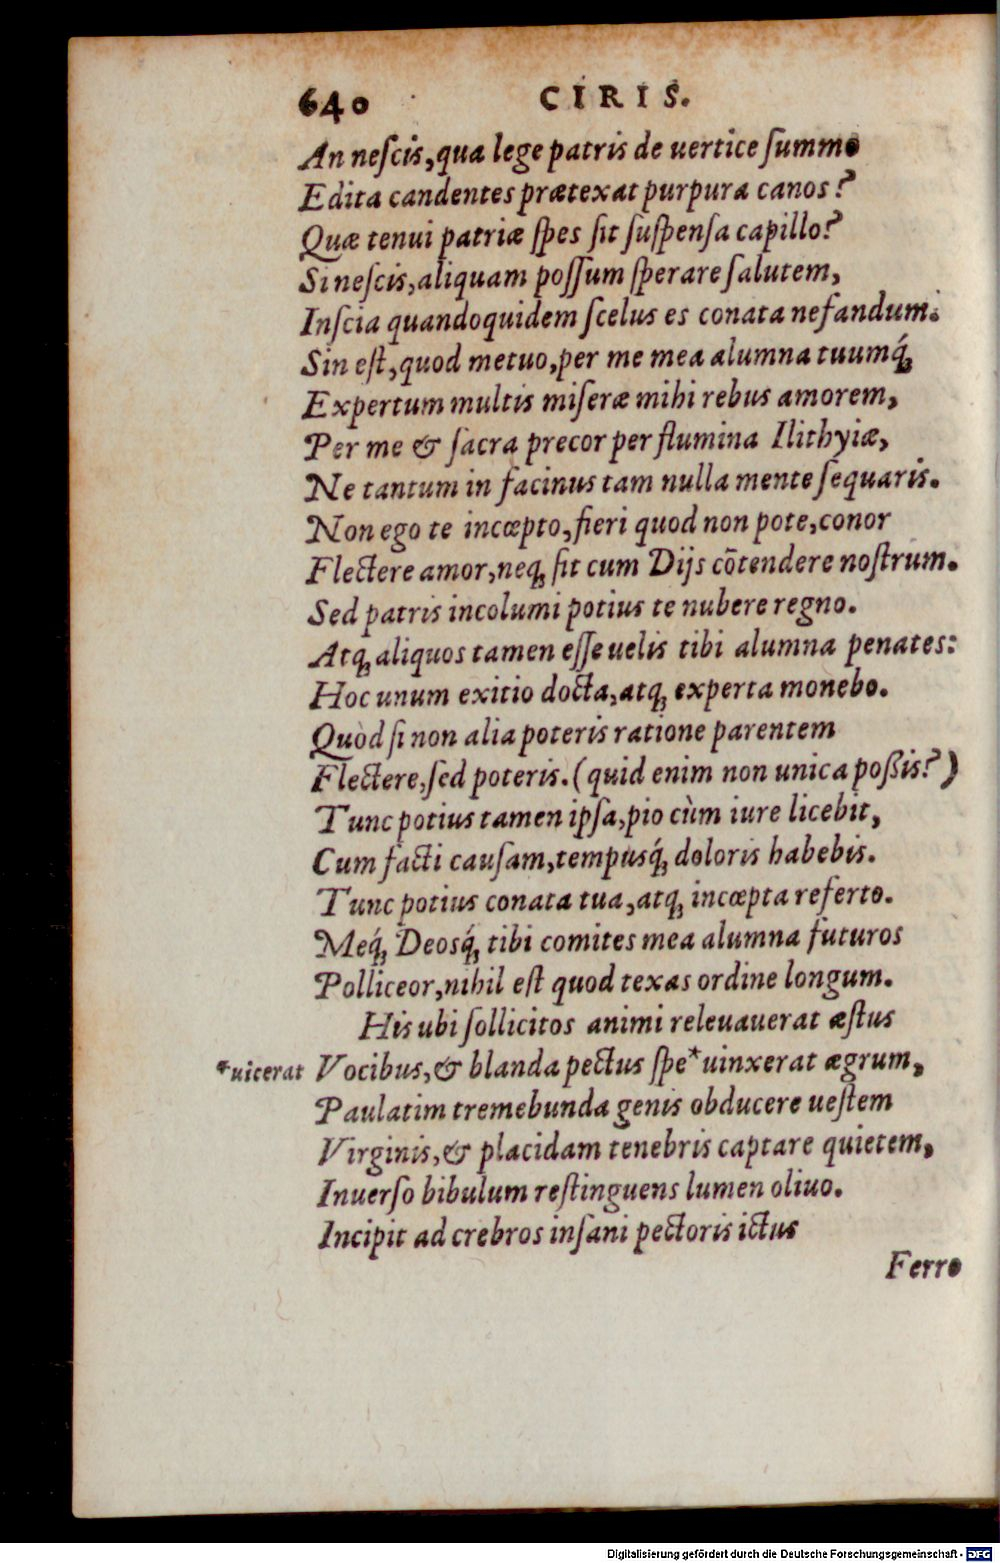 640 CIRIS.
An neſcis, qua lege patris de uertice ſummo
Edita candentes prætexat purpura canos?
Quæ tenui patriæ ſpes ſit ſuſpenſa capillo?
Si neſcis, aliquam poſſum ſperare ſalutem,
Inſcia quandoquidem ſcelus es conata nefandum.
Sin eſt, quod metuo, per me mea alumna tuumq́;
Expertum multis miſeræ mihi rebus amorem,
Per me & ſacra precor per flumina Ilithyiæ,
Ne tantum in facinus tam nulla mente ſequaris.
Non ego te incœpto, fieri quod non pote, conor
Flectere amor, neq; ſit cum Dijs cōtendere noſtrum.
Sed patris incolumi potius te nubere regno.
Atq; aliquos tamen eſſe uelis tibi alumna penates:
Hoc unum exitio docta, atq; experta monebo.
Quòd ſi non alia poteris ratione parentem
Flectere, ſed poteris. (quid enim non unica poßis?)
Tunc potius tamen ipſa, pio cùm iure licebit,
Cum facti cauſam, tempusq́; doloris habebis.
Tunc potius conata tua, atq; incœpta referto.
Meq́; Deosq́; tibi comites mea alumna futuros
Polliceor, nihil eſt quod texas ordine longum.
His ubi ſollicitos animi releuauerat æſtus
*uicerat Vocibus, & blanda pectus ſpe*uinxerat ægrum,
Paulatim tremebunda genis obducere ueſtem
Virginis, & placidam tenebris captare quietem,
Inuerſo bibulum reſtinguens lumen oliuo.
Incipit ad crebros inſani pectoris ictus
Ferro
Digitalisierung gefördert durch die Deutsche Forschungsgemeinschaft - DFG